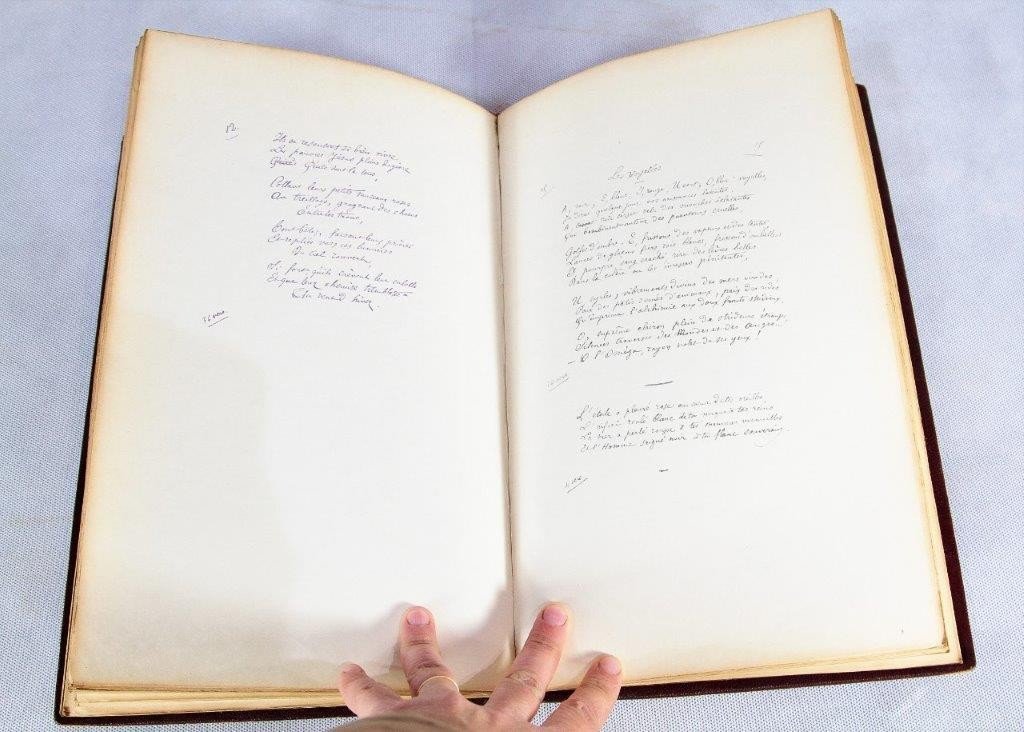 Ils se ressentent si bien vivre,
Les pauvres Jésus pleins de givre,
Collant leurs petits museaux roses
Au treillage, grognant des choses
Entre les trous,
Tout bêtes, faisant leurs prières
Et repliés vers ces lumières
Du ciel rouvert,
Si fort qu'ils crèvent leur culotte
Et que leur chemise tremblote
Au vent d'hiver
36 vers.
Les Voyelles
A, noir, E blanc, I rouge, U vert, O bleu : voyelles,
Je dirai quelque jour vos naissances latentes.
A, noir corset velu des mouches éclatantes
Qui bombillent autour des puanteurs cruelles,
Golfes d'ombre. E, frissons des vapeurs et des tentes,
Lances de glaçons fiers, rais blancs, frissons d'ombelles
I, pourpre, sang craché, rire des lèvres belles
Dans la colère ou les ivresses pénitentes,
U, cycles, vibrements divins des mers virides
Paix des pâtis semés d'animaux, paix des rides
Qu'imprima l'alchimie aux doux fronts studieux.
O, suprême clairon plein de strideurs étranges,
Silences traversés des Mondes et des Anges...
— O l'Oméga, rayon violet de ses yeux !
14 vers
L'étoile a pleuré rose au cœur de tes oreilles,
L'infini roulé blanc de ta nuque à tes reins
La mer a perlé rousse à tes mammes vermeilles
Et l'Homme saigné noir à ton flanc souverain.
4 vers